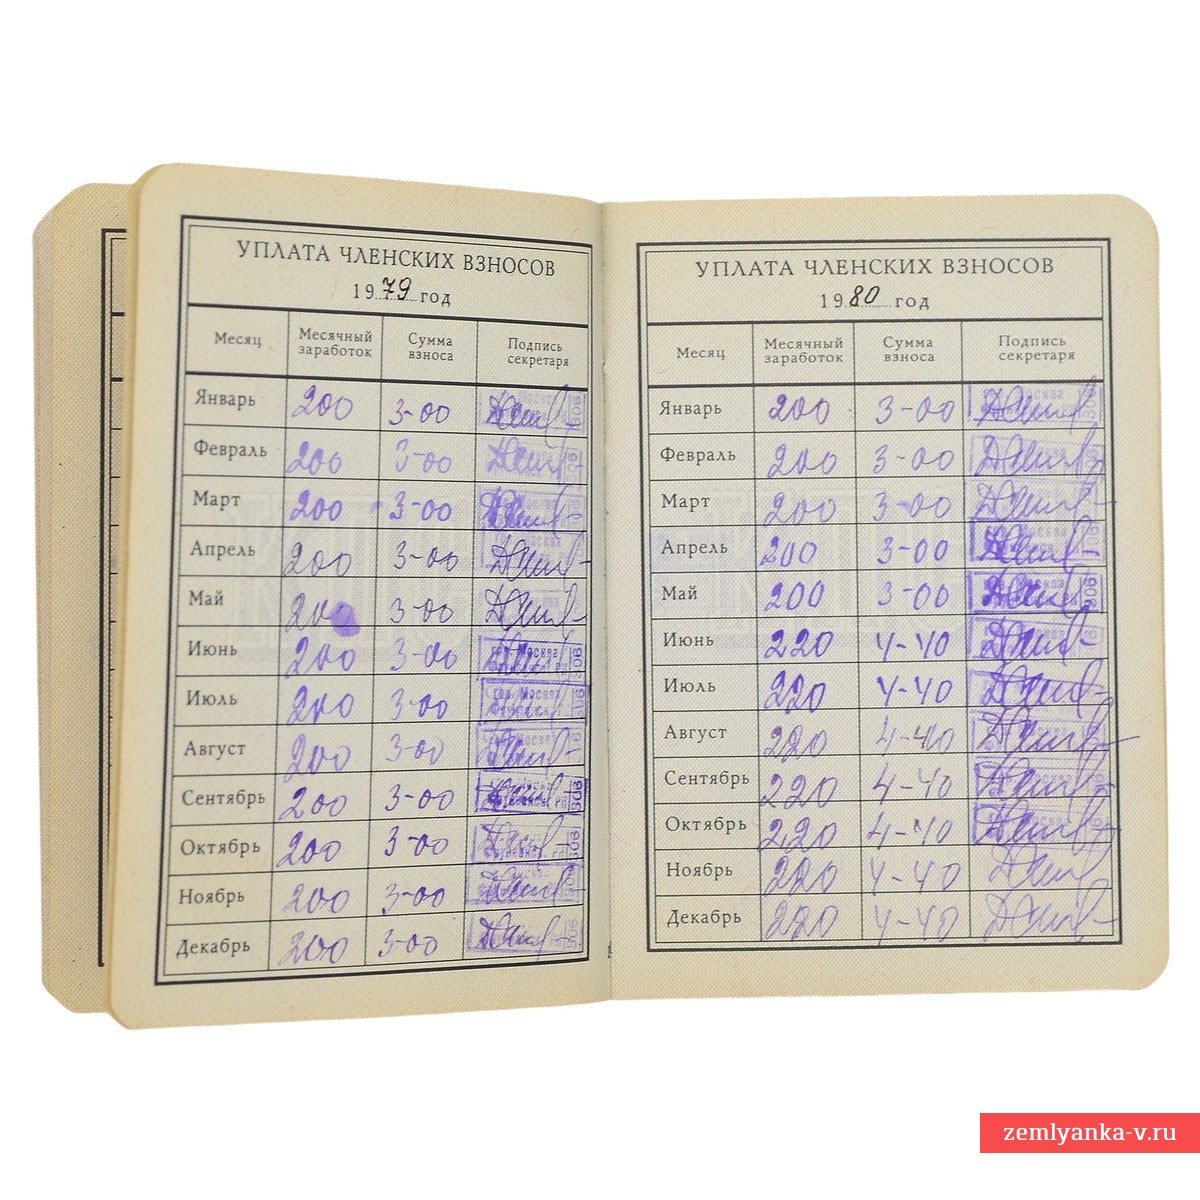 УПЛАТА ЧЛЕНСКИХ ВЗНОСОВ
1979 год
Месяц Месячный заработок Сумма взноса Подпись секретаря
Январь 200 3-00
Февраль 200 3-00
Март 200 3-00
Апрель 200 3-00
Май 200 3-00
Июнь 200 3-00 гор. Москва
Июль 200 3-00 гор. Москва
Август 200 3-00
Сентябрь 200 3-00
Октябрь 200 3-00
Ноябрь 200 3-00
Декабрь 200 3-00
УПЛАТА ЧЛЕНСКИХ ВЗНОСОВ
1980 год
Месяц Месячный заработок Сумма взноса Подпись секретаря
Январь 200 3-00
Февраль 200 3-00
Март 200 3-00
Апрель 200 3-00
Май 200 3-00 гор. Москва
Июнь 220 4-40
Июль 220 4-40
Август 220 4-40
Сентябрь 220 4-40
Октябрь 220 4-40
Ноябрь 220 4-40
Декабрь 220 4-40
zemlyanka-v.ru